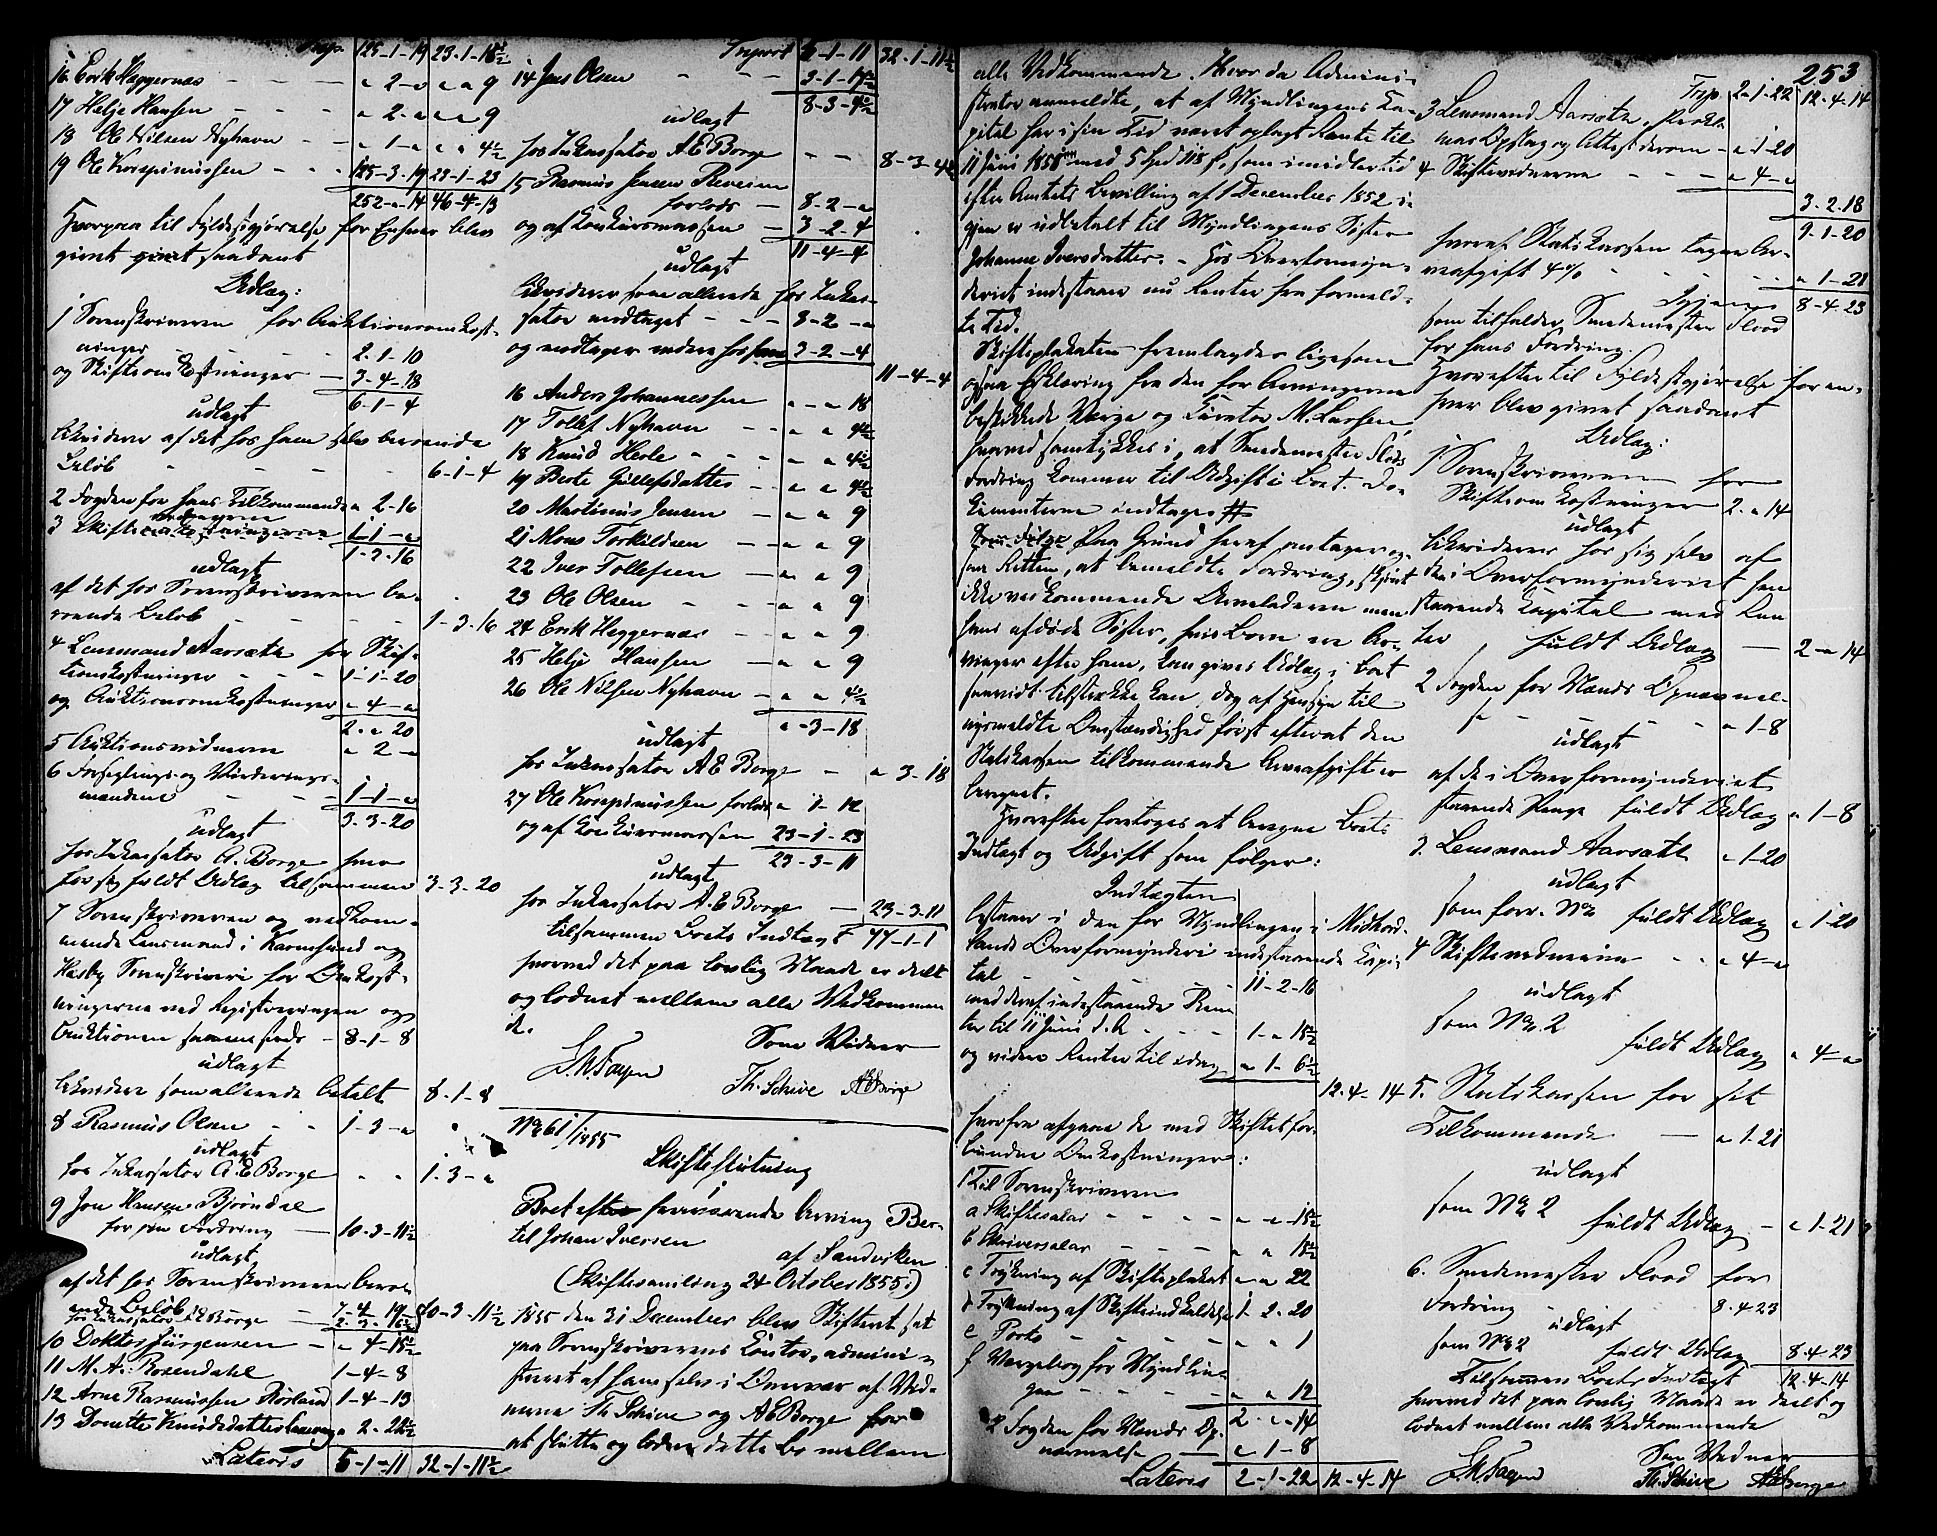 Trsp. 125-1-19 23-1-18½
16 Erik Heggernæs - - - " 2 - " " " 9
17 Helje Hansen - - - " 2 - " " " 9
18 Ole Nilsen Nyhavn - - " 1 - " " " 4½
19 Ole Korsprinussen - - 125-3-19 23-1-23
252-"-14 46-4-13
Hvorpaa til Fyldestgjørelse for Enhver blev
givet saadant
Udlæg:
1 Sorenskriveren for Auktionsomkost-
ninger - - - 2-1-10
og Skifteomkostninger - 3-4-18
6-1-4
udlagt
Likviderer af det hos ham selv beroende
Beløb - - - - 6-1-4
2 Fogden for hans Tilkommende " 2-16
3 Skiftevidnerne 1-1-"
1-3-16
udlagt
af det hos Sorenskriveren be-
roende Beløb - - - 1-3-16
4 Lensmand Aarsæth for Skif-
tomkostninger - - - 1-1-20
og Auktionsomkostninger " 4 - "
2-"-20
5 Auktionsvidnerne " 2 - "
6 Forseglings- og Vurderings-
mændene - - 1-1-"
3-3-20
udlagt
hos Inkassator A. Borge hver
for sig fuldt Udlæg tilsammen 3-3-20
7 Sorenskriveren og vedkom-
mende Lensmand i Karmsund og
Hesby Sorenskriveri for Omkost-
ningerne ved Registreringen og
Auktionen sammesteds - 8-1-8
udlagt
Likviderer som allerede betalt 8-1-8
8 Rasmus Olsen - - 1-3-"
udlagt
hos Inkassator A E Borge - - 1-3-"
9 Jon Hansen Bjørndal
for sin Fordring - 10-3-11½
udlagt
af det hos Sorenskriveren bero-
ende Beløb - 7-4-19
hos Inkassator A E Borge - 10-3-11½
10 Doktor Jürgensen - " 4-15½
11 M. A. Rosendahl 1-4-8
12 Arne Rasmussen Røsland 1-4-13
13 Dorette Knudsdatter " 2-22½
Lateris 5-1-11 32-1-11½
Transport 5-1-11 32-1-11½
14 Jens Olsen - - - 3-1-17½
8-3-4½
udlagt
hos Inkassator A E Borge - - 8-3-4½
15 Rasmus Jensen Reveim
forlods - 8-2-"
og af Konkursmassen - 3-2-4
11-4-4
udlagt
Likviderer som allerede hos Inkas-
sator modtaget - - - 8-2-"
og modtager videre hos ham 3-2-4
11-4-4
16 Anders Johannessen " - " 18
17 Tollef Nyhavn - - " " 4½
18 Knud Herle - - - " " 4½
19 Berte Gullefsdatter - " " 4½
20 Martinus Jensen - " " 9
21 Mons Torkildsen - " " 9
22 Iver Tollefsen - " " 9
23 Ole Olsen - - " " 9
24 Erik Heggernæs - " " 9
25 Helje Hansen - " " 9
26 Ole Nilsen Nyhavn - " " 4½
"-3-18
udlagt
hos Inkassator A E Borge - " 3-18
27 Ole Korsprinussen forlods " 1-12
og af Konkursmassen 23-1-23
23-3-11
udlagt
hos Inkassator A. E Borge - 23-3-11
tilsammen Boets Indtægt 77-1-1
hvorved det paa lovlig Maade er deelt
og lodnet mellem alle Vedkommen
de.
Som Vidner
Th. Schive AEBorge
No 61/1855
Skifteslutning
i
Boet efter fraværende Arving Ber-
til Johan Iversen
af Sandviken
(Skiftesamling 24 October 1855.)
1855 den 31 December blev Skifteret sat
paa Sorenskriverens Contor, admini-
streret af ham selv i Overvær af Vid-
nerne Th Schive og A E Borge for
at slutte og lodne dette Bo mellem
alle Vedkommende. Hvor da Admini-
strator anmeldte, at af Myndlingens Ka-
pital har i sin Tid været oplagt Rente til
11 Juni 1855 med 5 Spd 118 s, som imidlertid
efter Amtets Bevilling af 1 December 1852 i-
gjen er udbetalt til Myndlingens Søster
Johanne Iversdatter. - Hos Overformyn-
deriet indestaar nu Renter fra formeld-
te Tid.
Skifteplakaten fremlagdes ligesom
ogsaa Erklæring fra den for Arvingerne
beskikkede Værge og Curator M. Larsen
hvorved samtykkes i, at Smedemester Floods
Fordring kommer til Udgift i Boet. Do-
kumenterne indtages #
Paa Grund heraf antages og-
saa Retten, at bemeldte Fordring, skjønt
ikke vedkommende Arveladeren men
hans afdøde Søster, hvis Børn ere Ar-
vinger efter ham, kan gives Udlæg i Boet
saavidt tilstrække kan, dog af Hensyn til
nysmeldte Omstændighed først efterat den
Statskassen tilkommende Arveafgift er
beregnet.
Hvorefter foretoges at beregne Boets
Indtægt og Udgift som følger:
Indtægten
bestaar i den for Myndlingen i Midhord-
lands Overformynderi indestaaende Kapi-
tal - - - - 11-2-16
med deraf indestaaende Ren-
ter til 11 Juni d. A. - - - 1-"-15½
og videre Renter til idag " 1-6½
12-4-14
hvorfra afgaar de med Skiftet for-
bundne Omkostninger:
1 Til Sorenskriveren
a Skiftesalar - - - " " 15½
b Skriversalar - - - " " 15½
c Trykning af Skifteplakat " " 22
d Trykning af Skifteindkaldelse 1-2-20
e Porto - - - - " " 1
f Værgebog for Myndlin-
gen - - - - " " 12
2-"-14
2 Fogden for Mænds Op-
nævnelse - " 1-8
Lateris 2-1-22 12-4-14
253
Trsp. 2-1-22 12-4-14
3 Lensmand Aarsæth, Plaka-
ters Opslag og Attest derom - " 1-20
4 Skiftevidnerne - - - " 4 - "
3-2-18
9-1-20
hvoraf Statskassen tager Ar-
veafgift 4% - - - - " 1-21
Igjen 8-4-23
som tilfalder Smedemester Flood
for hans Fordring.
Hvorefter til Fyldestgjørelse for en-
hver blev givet saadant
Udlæg:
1 Sorenskriveren for
Skifteomkostninger 2-"-14
udlagt
Likviderer hos sig selv af
den i Overformynderiet hen-
staaende Kapital med Ren-
ter
fuldt Udlæg - 2-"-14
2 Fogden for Mænds Opnævnel-
se - - - - " 1-8
udlagt
af de i Overformynderiet
staaende Penge fuldt Udlæg " 1-8
3. Lensmand Aarsæth " 1-20
udlagt
som forr. No fuldt Udlæg " 1-20
4 Skiftevidnerne - - " 4 - "
udlagt
som No. 2
fuldt Udlæg " 4 - "
5. Statskassen for sit
Tilkommende - " 1-21
udlagt
som No 2
fuldt Udlæg - " 1-21
6. Smedemester Flood for
Fordring - 8-4-23
udlagt
som No 2 fuldt Udlæg 8-4-23
Tilsammen Boets Indtægt 12-4-14
hvorved det paa lovlig Maade er deelt og
lodnet mellem alle Vedkommende
Som Vidner
Th. Schive AEBorge